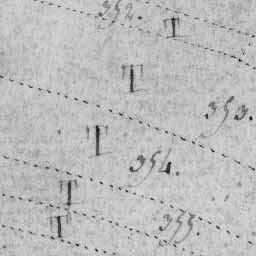 352.
T
T
353.
T
354.
T
T
355.